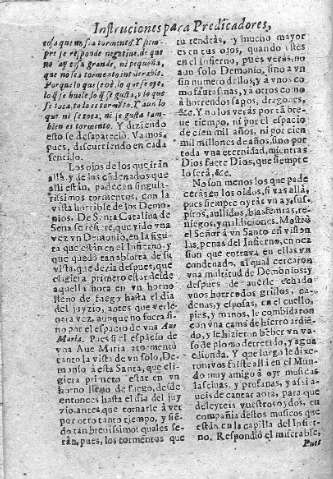 Instruciones para Predicadores,
cosa que no sea tormento? Y siem-
pre se responde negatiue. de que
no ay cosa grande, ni pequeña,
que no sea tormento intolerable.
Porque lo que se vè, lo que se oye,
lo que se huele, lo que se gusta, y lo que
se toca, todo es tormento. Y aun lo
que ni se toca, ni se gusta tam-
bien es tormento. Y diziendo
esto se desapareciò. Vamos,
pues, discurriendo en cada
sentido.
Los ojos de los que iràn
allà, y de los condenados que
allì estàn, padecen singulis-
simos tormentos, con la
vista horrible de los Demo-
nios. De Santa Catalina de
Sena se refiere, que viò vna
vez vn Demonio, en la figu-
ra que estàn en el Infierno, y
que quedò tan absorta de su
vista, que dezia despues, que
eligiera primero estar desde
aquella hora en vn horno
lleno de fuego hasta el dia
del juyzio, antes que verle
otra vez, aunque no fuera si-
no por el espacio de vna Aue
Maria. Pues si el espacio de
vna Aue Maria atormentò
tanto la vista de vn solo De-
monio à esta Santa, que eli-
giera primero estar en vn
horno lleno de fuego, desde
entonces hasta el dia del juy
yzio, antes que tornarle à ver
por otro tanto tiempo, y sien-
do tan breuissimo quales se-
ràn, pues, los tormentos que
tu tendràs, y mucho mayor
es en tus ojos, quando estès
en el Infierno, pues veràs, no
aun solo Demonio, sino à vn
sin numero dellos, y à vnos co-
mo sauresinas, y à otros co-
mo horrendos sapos, dragones,
&c. Y no los veràs por tã bre-
ue tiempo, ni por el espacio
de cien mil años, ni por cien
mil millones de años, sino por
toda vna eternidad, mientras
Dios fuere Dios, que siempre
lo serà, &c.
No son menos los que pade
ceràs en los oìdos, si vas allà,
pues siempre oyràs vn ay, sus-
piros, aullidos, blasfemias, re-
niegos, y maldiciones. Mostrò
el Señor à vn Santo en vision
las penas del Infierno, en oca-
sion que entraua en ellas vn
condenado, al qual cercaron
vna multitud de Demonios, y
despues de auerle echado
vnos horrendos grillos, ca-
denas, y esposas, en el cuello,
pies, y manos, le combidaron
con vna cama de hierro ardiẽ-
do, y le hizieron beber vn bal-
de de plomo derretido, y agua
hedionda. Y que luego le dixe-
ron: vos fuiste allì en el Mun-
do muy amigo à oyr musicas
lasciuas, y profanas, y assi a-
ueis de cantar aora, para que
deleyteis vuestros oydos, en
compañia destos musicos que
estàn en la capilla del Infier-
no. Respondiò el miserable,
Pues